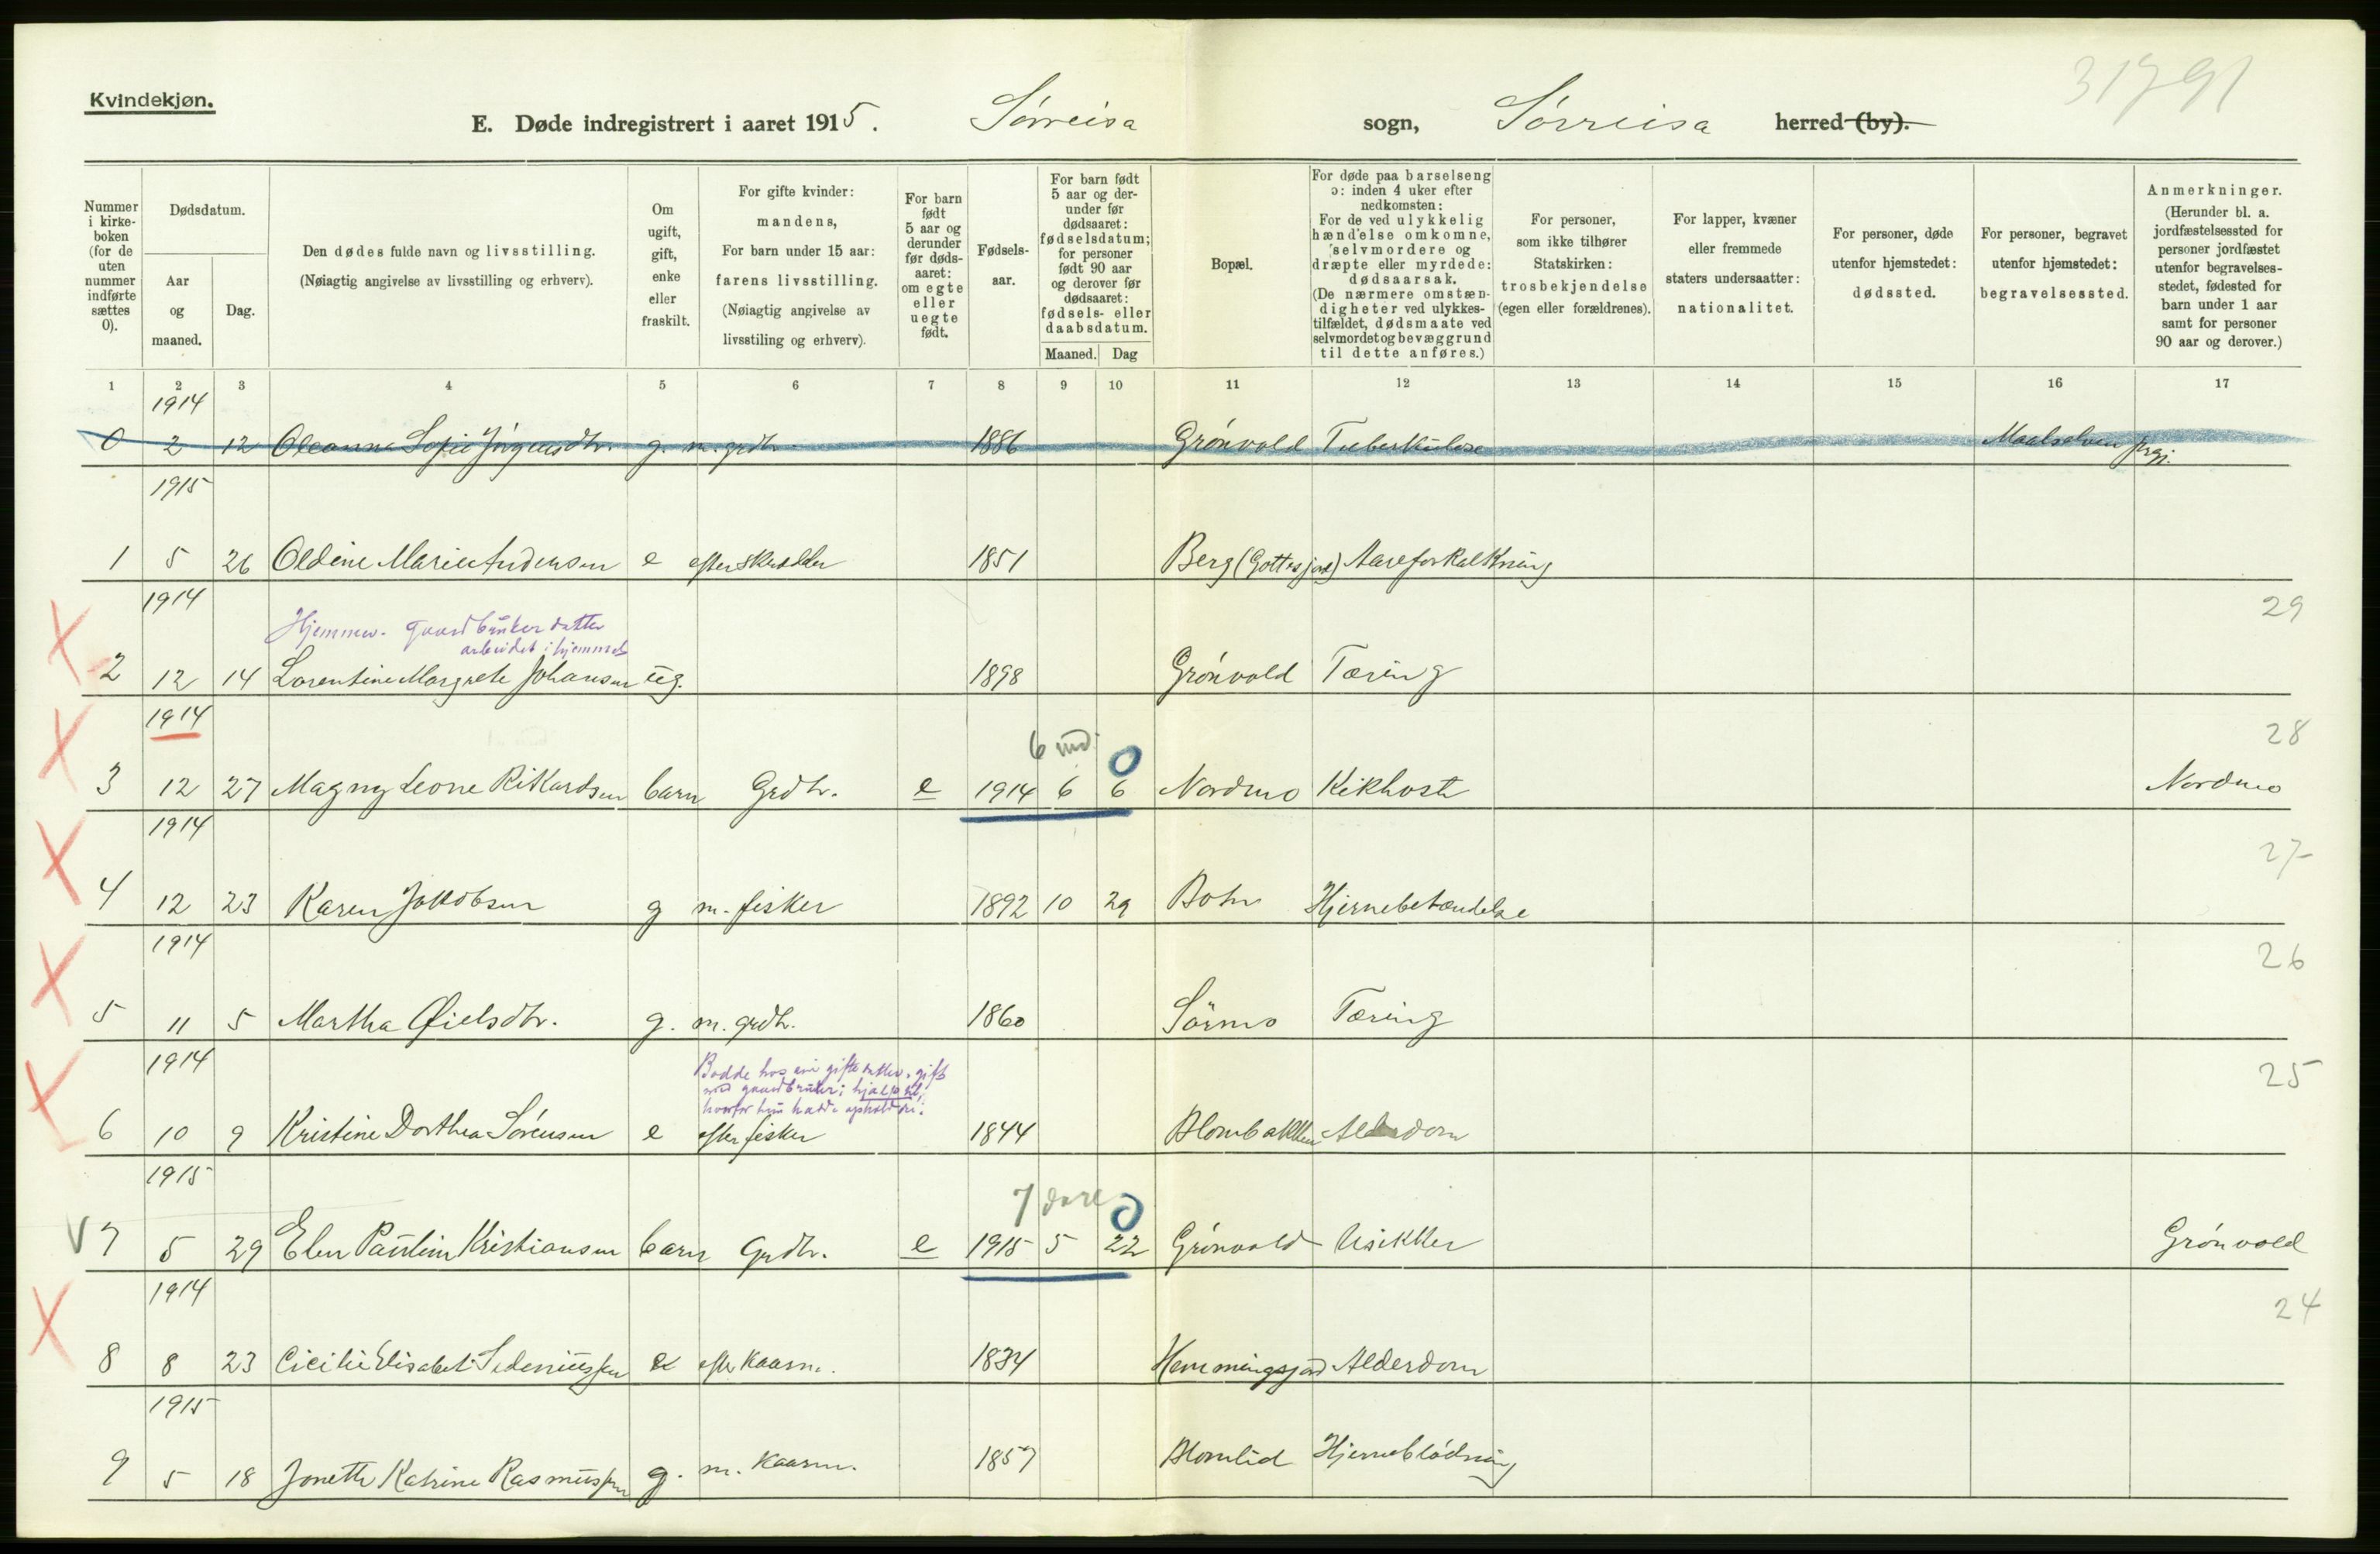 31791
Kvindekjøn.
E. Døde indregistrert i aaret 1915. Sørreisa sogn, Sørreisa herred (by).
Nummer i kirkeboken (for de uten nummer indførte sættes 0).
Dødsdatum.
Aar og maaned.
Dag.
Den dødes fulde navn og livsstilling.
(Nøiagtig angivelse av livsstilling og erhverv).
Om ugift, gift, enke eller fraskilt.
For gifte kvinder: mandens,
For barn under 15 aar: farens livsstilling.
(Nøiagtig angivelse av livsstiling og erhverv).
For barn født 5 aar og derunder før dødsaaret: om egte eller uegte født.
Fødselsaar.
For barn født 5 aar og derunder før dødsaaret: fødselsdatum; for personer født 90 aar og derover før dødsaaret: fødsels- eller daabsdatum.
Maaned. Dag
Bopæl.
For døde paa barselseng ɔ: inden 4 uker efter nedkomsten: For de ved ulykkelig hændelse omkomne, selvmordere og dræpte eller myrdede: dødsaarsak. (De nærmere omstændigheter ved ulykkestilfældet, dødsmaate ved selvmordet og bevæggrund til dette anføres.)
For personer, som ikke tilhører Statskirken: trosbekjendelse (egen eller forældrenes).
For lapper, kvæner eller fremmede staters undersaatter: nationalitet.
For personer, døde utenfor hjemstedet: dødssted.
For personer, begravet utenfor hjemstedet: begravelsessted.
Anmerkninger. (Herunder bl. a. jordfæstelsessted for personer jordfæstet utenfor begravelsesstedet, fødested for barn under 1 aar samt for personer 90 aar og derover.)
1 2 3 4 5 6 7 8 9 10 11 12 13 14 15 16 17
1914
0 2 12 Oleanna Sofie Jørgensdtr. g. m. grdbr. 1886 Grønvold Tuberkulose Maalselven prgj.
1915
1 5 26 Oldine Marie Andersen e efter skrædder 1851 Berg (Gottesjord) Aareforkalkning
1914
29
Hjemmev. gaardbruker datter
arbeidet i hjemmet
2 12 14 Lorentine Margrete Johansen ug. 1898 Grønvold Tæring
1914
6 md. 0
28
3 12 27 Magny Leone Rikardsen barn Grdbr. e 1914 6 6 Nordmo Kikhoste Nordmo
1914
27
4 12 23 Karen Jakobsen g m. fisker 1892 10 29 Botn Hjernebetændelse
1914
26
5 11 5 Martha Øielsdtr. g. m. grdbr. 1860 Sörmo Tæring
1914
25
Bodde hos sin gifte datter, gift
med gaardbruker; hjalp til,
hvorfor hun hadde ophold der.
6 10 9 Kristine Dorthea Sørensen e efter fisker 1844 Blombakken Alderdom
1915
7 dage 0
V 7 5 29 Elen Pauline Kristiansen barn Grdbr. e 1915 5 22 Grønvold Usikker Grønvold
1914
24
8 8 23 Cicilie Elisabet e efter kaarm. 1834 Hemmingsjord Alderdom
1915
9 5 18 Jonette Katrine Rasmussen g. m. kaarm. 1857 Blomlid Hjerneblødning